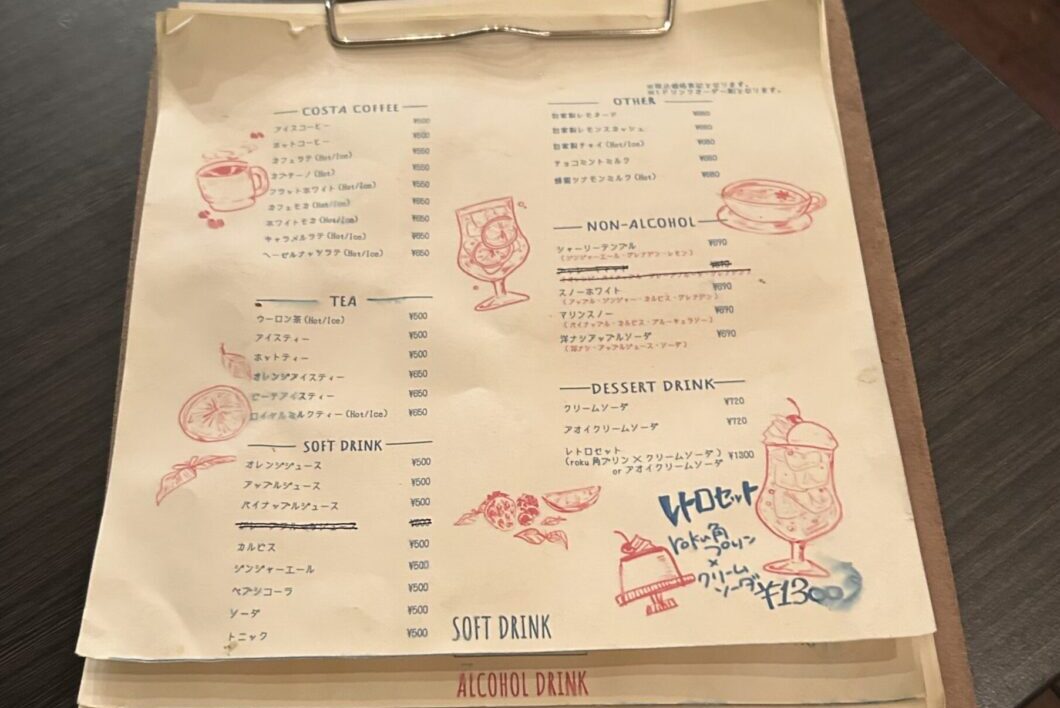 COSTA COFFEE
アイスコーヒー ¥500
ホットコーヒー ¥500
カフェラテ(Hot/Ice) ¥550
カプチーノ(Hot) ¥550
フラットホワイト(Hot/Ice) ¥550
カフェモカ(Hot/Ice) ¥650
ホワイトモカ(Hot/Ice) ¥650
キャラメルラテ(Hot/Ice) ¥650
ヘーゼルナッツラテ(Hot/Ice) ¥650
TEA
ウーロン茶(Hot/Ice) ¥500
アイスティー ¥500
ホットティー ¥500
オレンジアイスティー ¥650
ピーチアイスティー ¥650
ロイヤルミルクティー(Hot/Ice) ¥650
SOFT DRINK
オレンジジュース ¥500
アップルジュース ¥500
パイナップルジュース ¥500
カルピス ¥500
ジンジャーエール ¥500
ペプシコーラ ¥500
ソーダ ¥500
トニック ¥500
※税込価格表記となります。
※1ドリンクオーダー制となります。
OTHER
自家製レモネード ¥680
自家製レモンスカッシュ ¥680
自家製チャイ(Hot/Ice) ¥680
チョコミントミルク ¥680
蜂蜜シナモンミルク(Hot) ¥680
NON-ALCOHOL
シャーリーテンプル ¥690
(ジンジャーエール・グレナデン・レモン)
スノーホワイト ¥690
(アップル・ジンジャー・カルピス・グレナデン)
マリンスノー ¥690
(パイナップル・カルピス・ブルーキュラソー)
洋ナシアップルソーダ ¥690
(洋ナシ・アップルジュース・ソーダ)
DESSERT DRINK
クリームソーダ ¥720
アオイクリームソーダ ¥720
レトロセット
(roku角プリン×クリームソーダ) ¥1300
or アオイクリームソーダ
レトロセット
roku角
プリン
×
クリーム
ソーダ ¥1300
SOFT DRINK
ALCOHOL DRINK